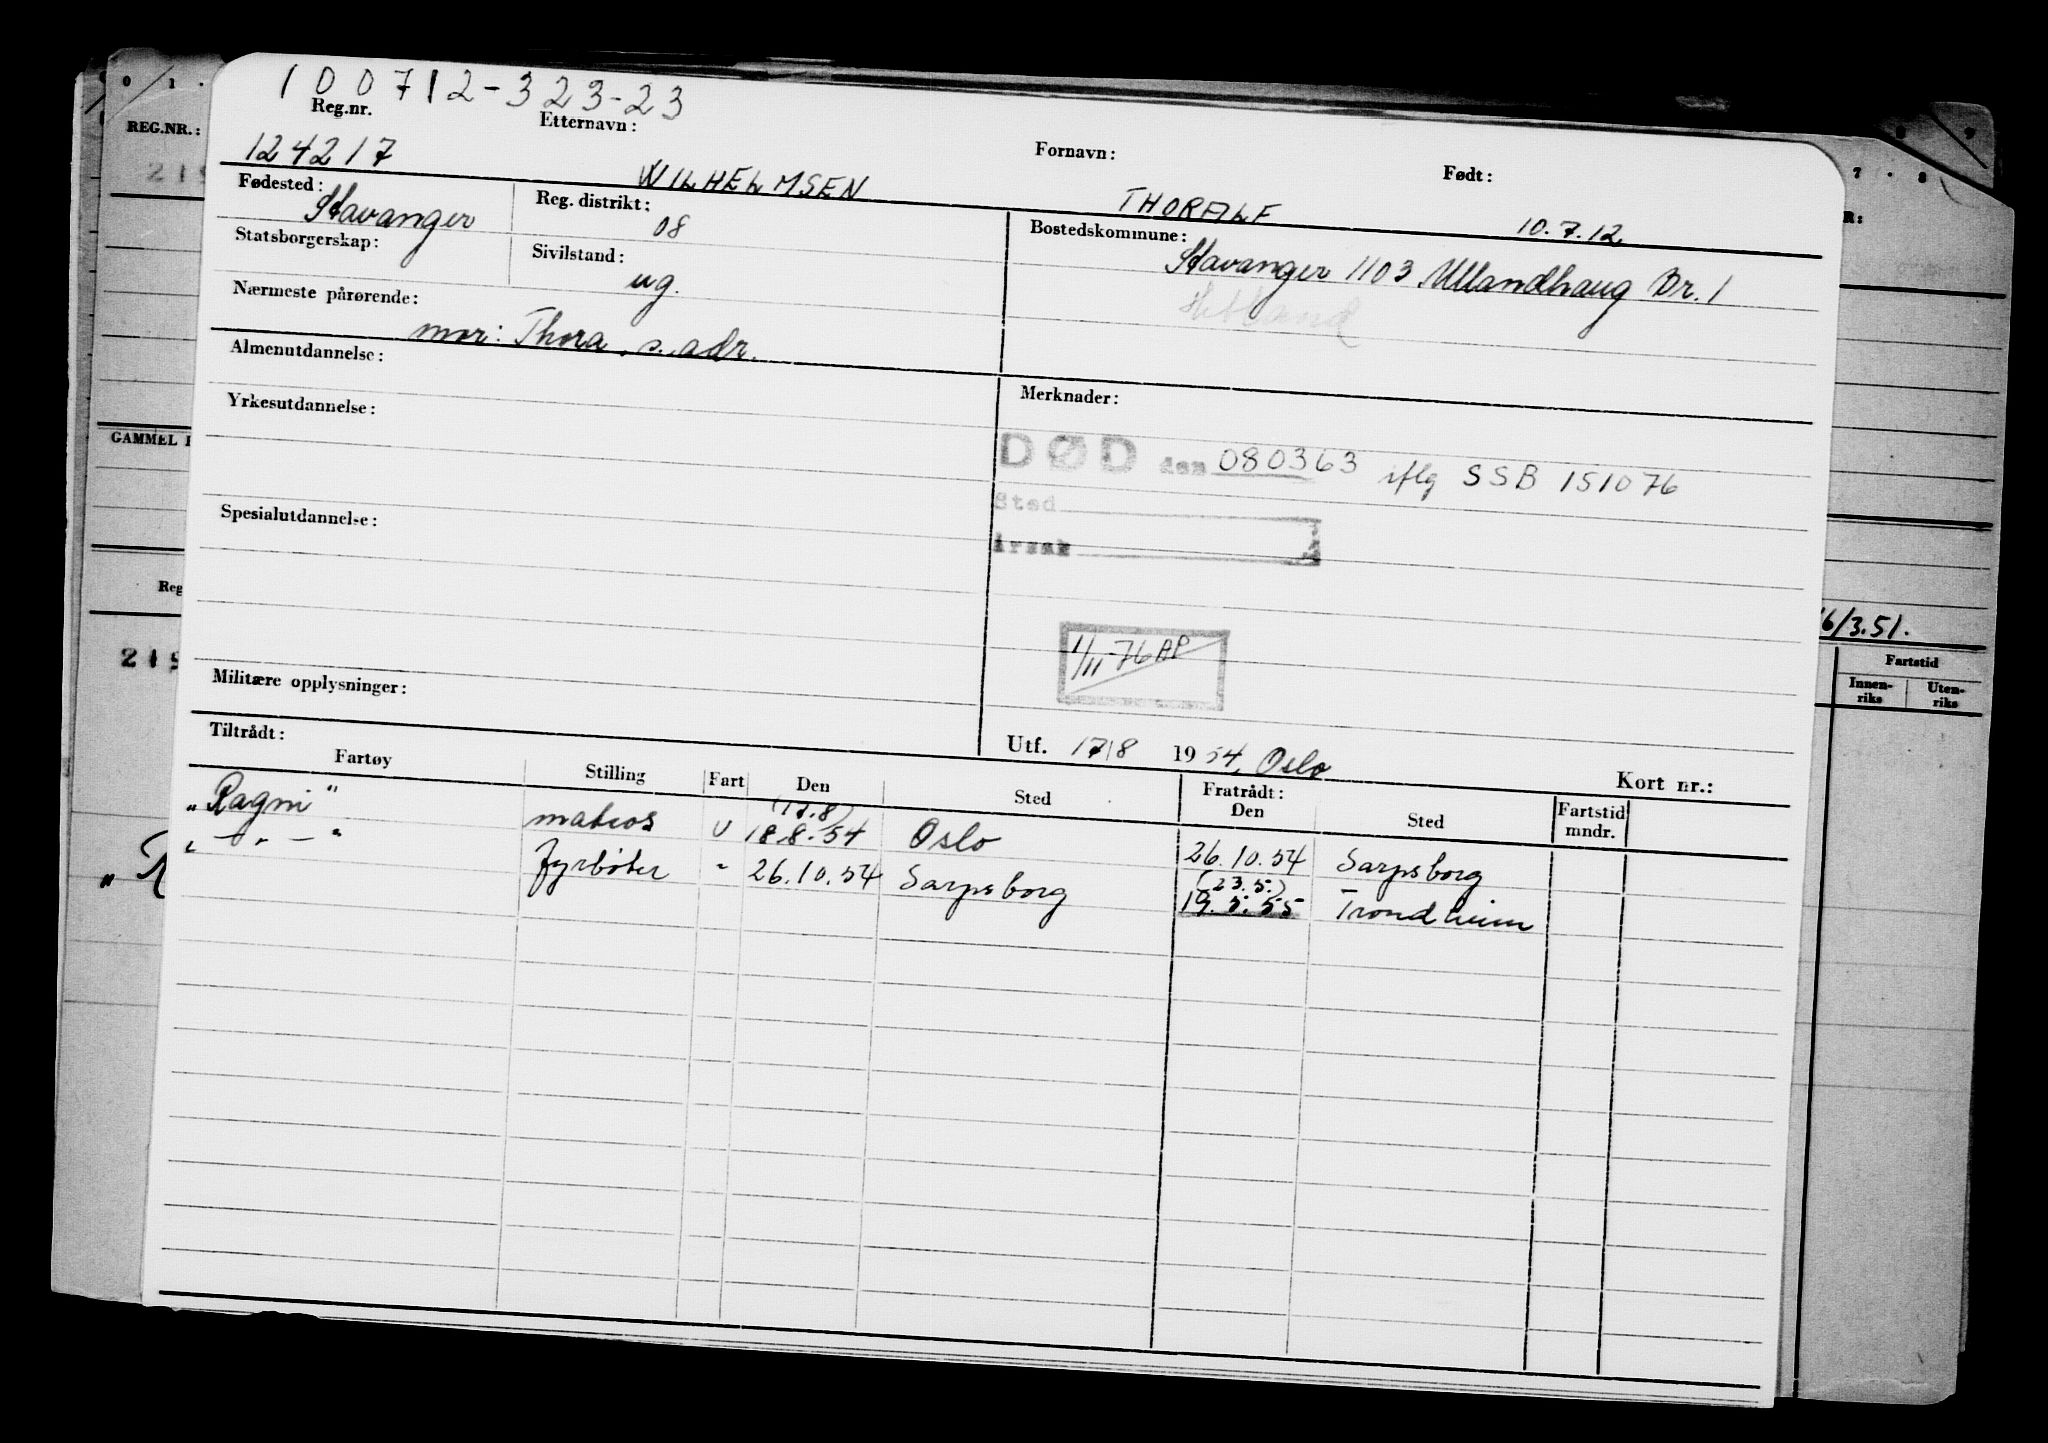 100712-323-23
Reg.nr. Etternavn: Fornavn: Født:
124217 WILHELMSEN THORALF 10.7.12.
Fødested: Stavanger Reg. distrikt: 08 Bostedskommune: Stavanger 1103 Ullandhaug Br. 1
Statsborgerskap: Sivilstand: ug. Hetland
Nærmeste pårørende:
mor: Thora s. adr.
Almenutdannelse:
Yrkesutdannelse: Merknader:
DØD den 080363 iflg SSB 151076
Sted
Årsak
Spesialutdannelse:
1/11-76 AP
Militære opplysninger:
Utf. 17/8 1954, Oslo Kort nr.:
Tiltrådt: Fratrådt:
Fartøy Stilling Fart Den Sted Den Sted Fartstid mndr.
(17.8)
"Ragni" matros U 18.8.54 Oslo 26.10.54 Sarpsborg
" — " — " fyrbøter " 26.10.54 Sarpsborg (23.5.) 19.5.55 Trondheim
REG.NR.:
219
GAMMEL
Reg
219
R:
6/3.51.
Fartstid
Innen-riks Uten-riks